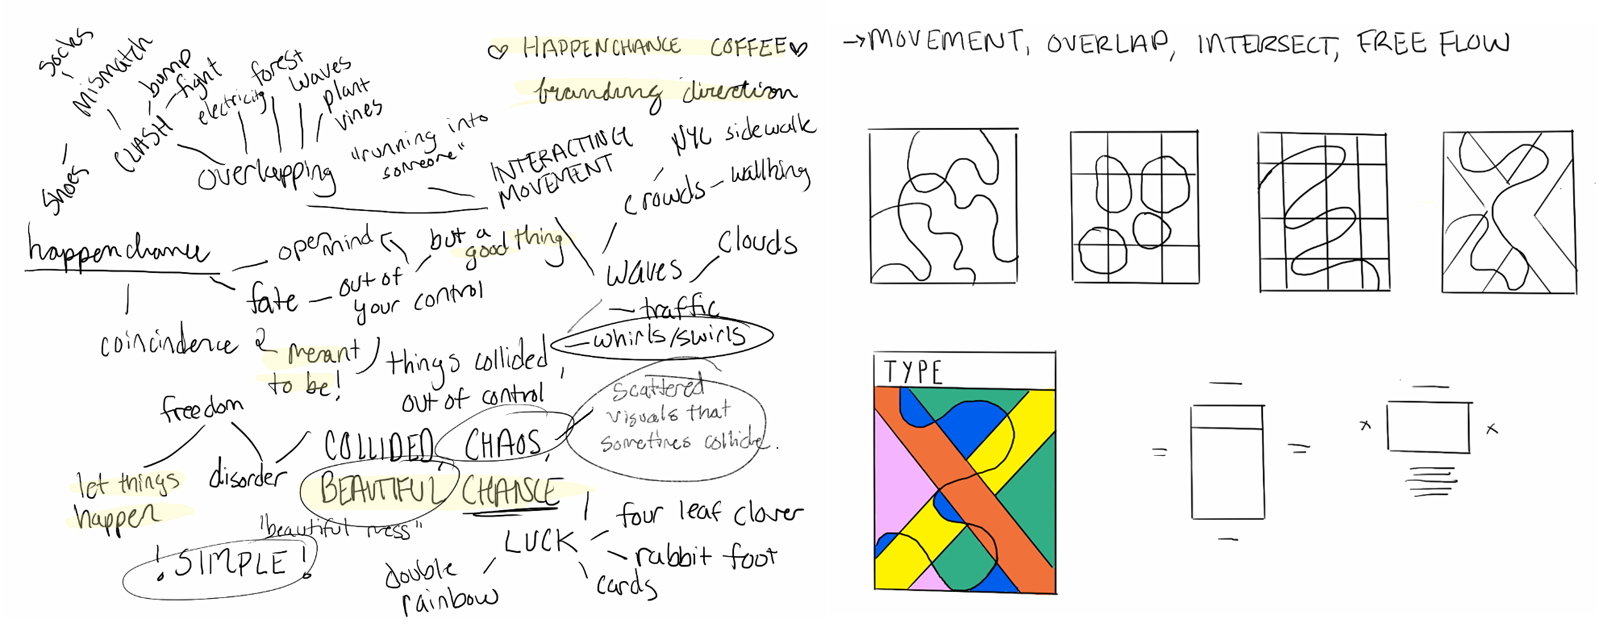 ♡ HAPPENCHANCE COFFEE ♥
branding direction
socks
mismatch
shoes
bump
fight
CLASH
electricity
forest
waves
plant
vines
overlapping
"running into
someone"
INTERACTING
MOVEMENT
NYC sidewalk
crowds – walking
waves
clouds
– traffic
– whirls/swirls
happenchance
open mind
but a
good thing
fate – out of
your control
coincindence
meant
to be!
things collided
out of control
scattered
visuals that
sometimes collide.
freedom
let things
happen
disorder
COLLIDED, CHAOS,
BEAUTIFUL CHANCE
"beautiful mess"
! SIMPLE !
LUCK
four leaf clover
rabbit foot
cards
double
rainbow
→ MOVEMENT, OVERLAP, INTERSECT, FREE FLOW
TYPE